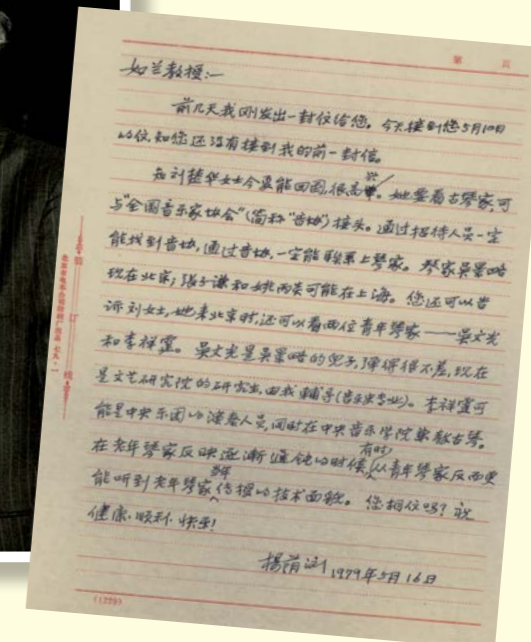 第 頁
如兰教授:—
前几天我刚发出一封信给您。今天接到您5月10日
的信,知您还没有接到我的前一封信。
知刘楚华女士今夏能回国,很高兴。她要看古琴家,可
与“全国音乐家协会”(简称“音协”)接头。通过招待人员一定
能找到音协,通过音协,一定能联系上琴家。琴家吴景略
现在北京;张子谦和姚丙炎可能在上海。您还可以告
诉刘女士,她来北京时,还可以看两位青年琴家——吴文光
和李祥霆。吴文光是吴景略的儿子,弹得很不差,现在
是文艺研究院的研究生,由我辅导(音乐史专业)。李祥霆可
能是中央乐团的演奏人员,同时在中央音乐学院兼教古琴。
在老年琴家反映逐渐迟钝的时候,有时从青年琴家反而更
能听到老年琴家当年传授的技术面貌。您相信吗?祝
健康、顺利、快乐!
楊蔭浏 1979年5月16日
装 订 线
(1229)